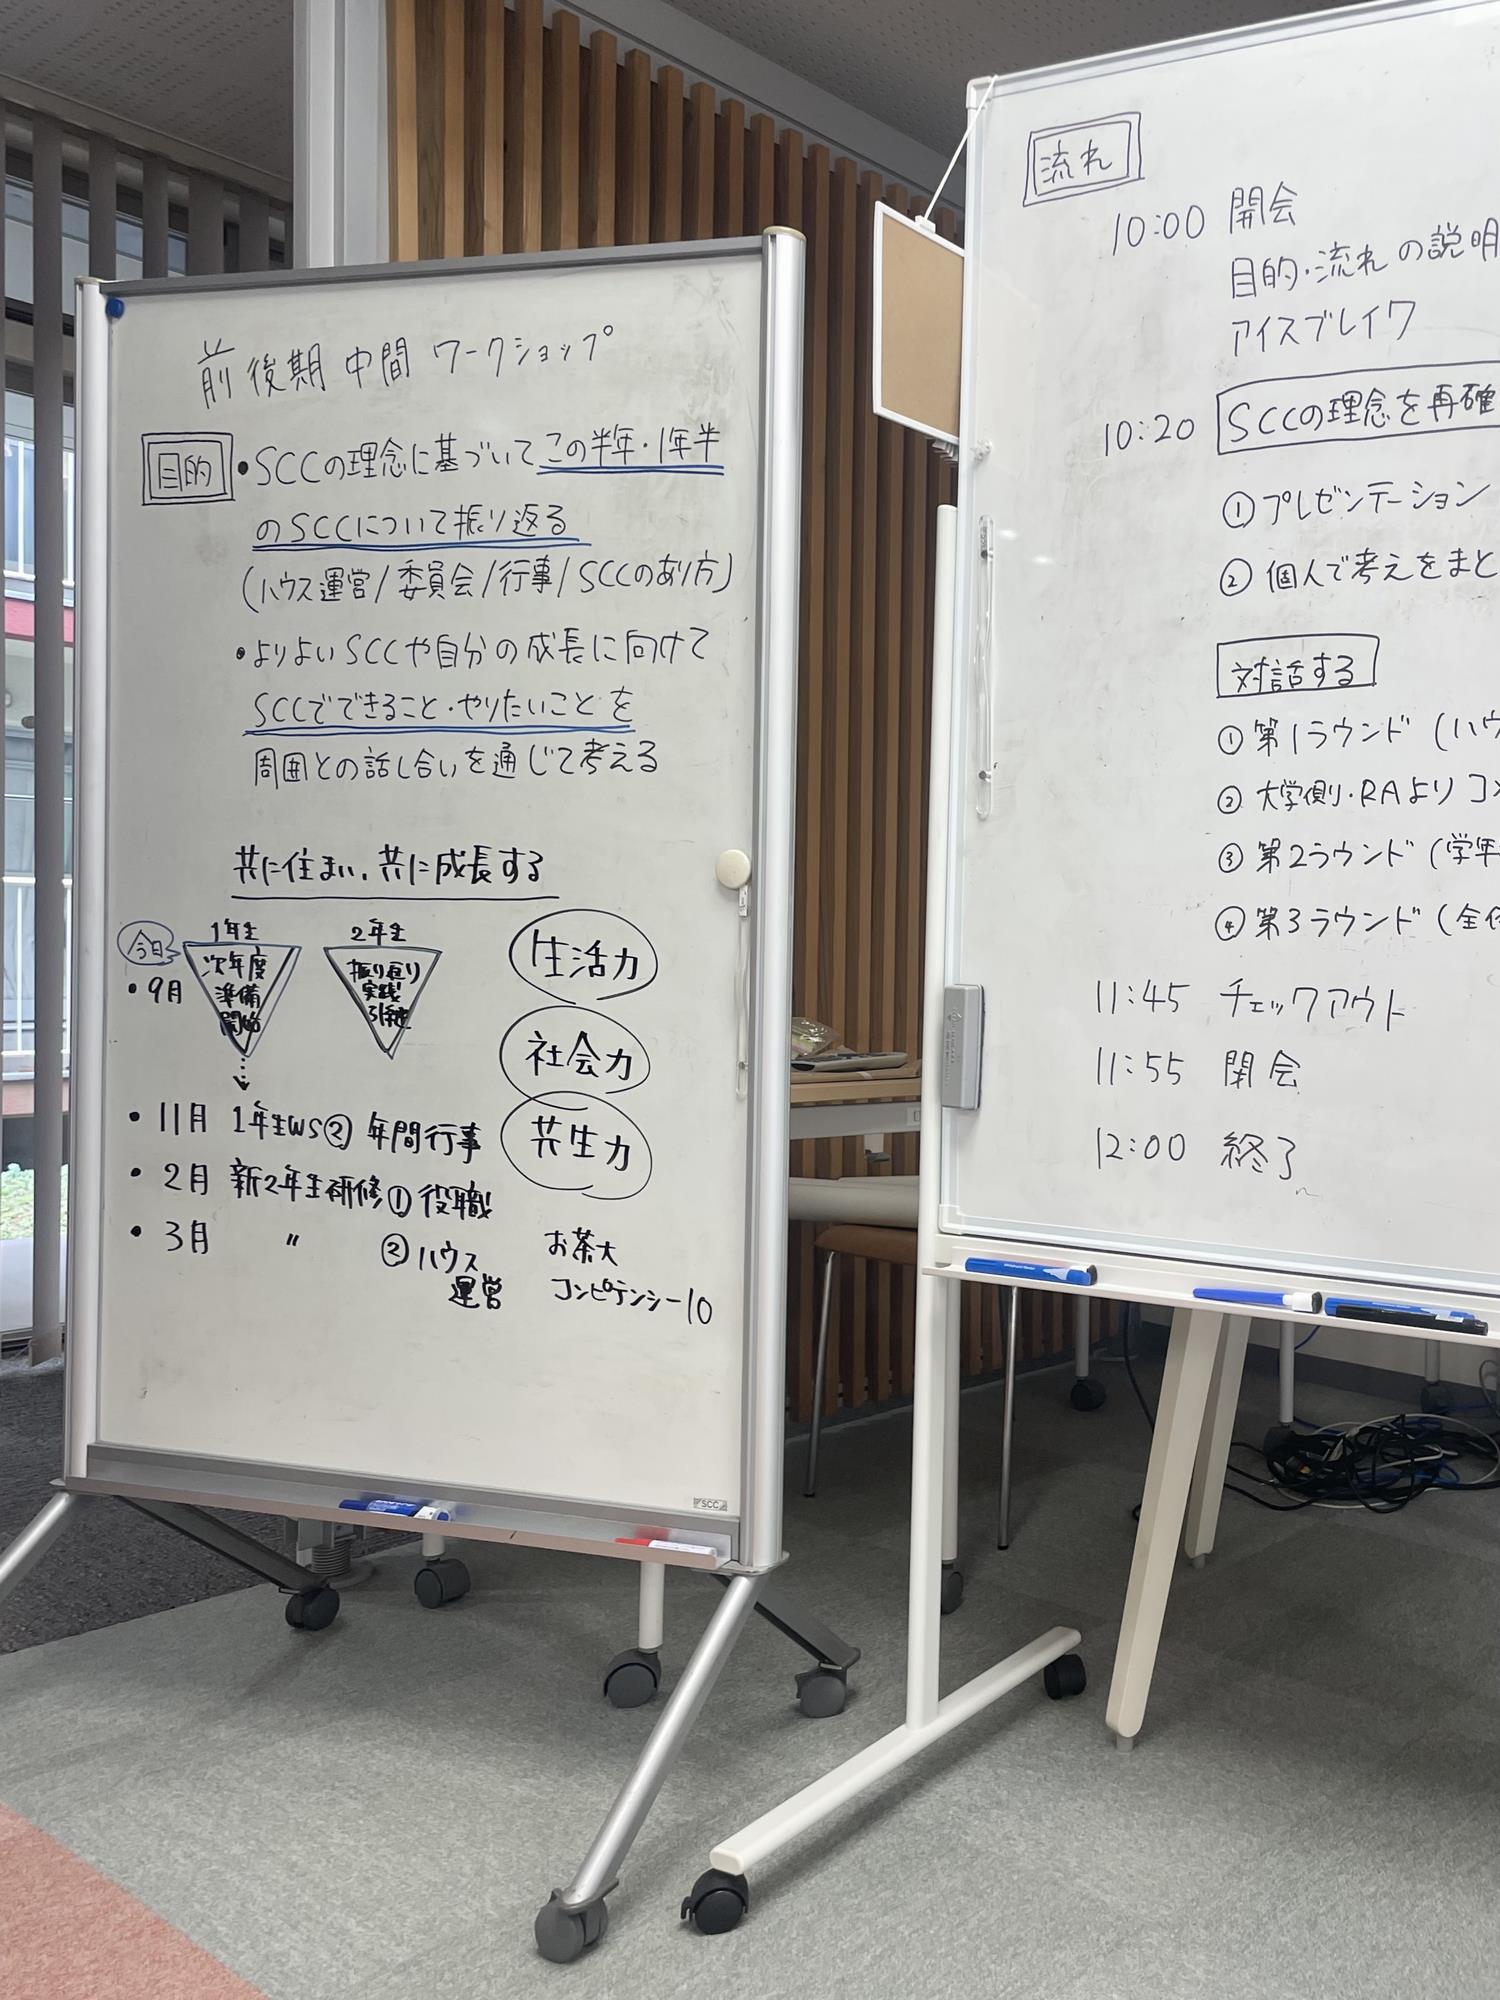 前後期 中間 ワークショップ
目的
・SCCの理念に基づいてこの半年・1年半
のSCCについて振り返る
(ハウス運営/委員会/行事/SCCのあり方)
・よりよいSCCや自分の成長に向けて
SCCでできること・やりたいことを
周囲との話し合いを通じて考える
共に住まい、共に成長する
今日
・9月
1年生
次年度
準備
開始
2年生
振り返り
実践
引継
・11月 1年生WS② 年間行事
・2月 新2年生研修① 役職
・3月 〃 ② ハウス
運営
生活力
社会力
共生力
お茶大
コンピテンシー10
SCC
流れ
10:00 開会
目的・流れの説明
アイスブレイク
10:20 SCCの理念を再確
① プレゼンテーション
② 個人で考えをまと
対話する
① 第1ラウンド (ハウ
② 大学側・RAよりコ
③ 第2ラウンド (学年
④ 第3ラウンド (全
11:45 チェックアウト
11:55 閉会
12:00 終了